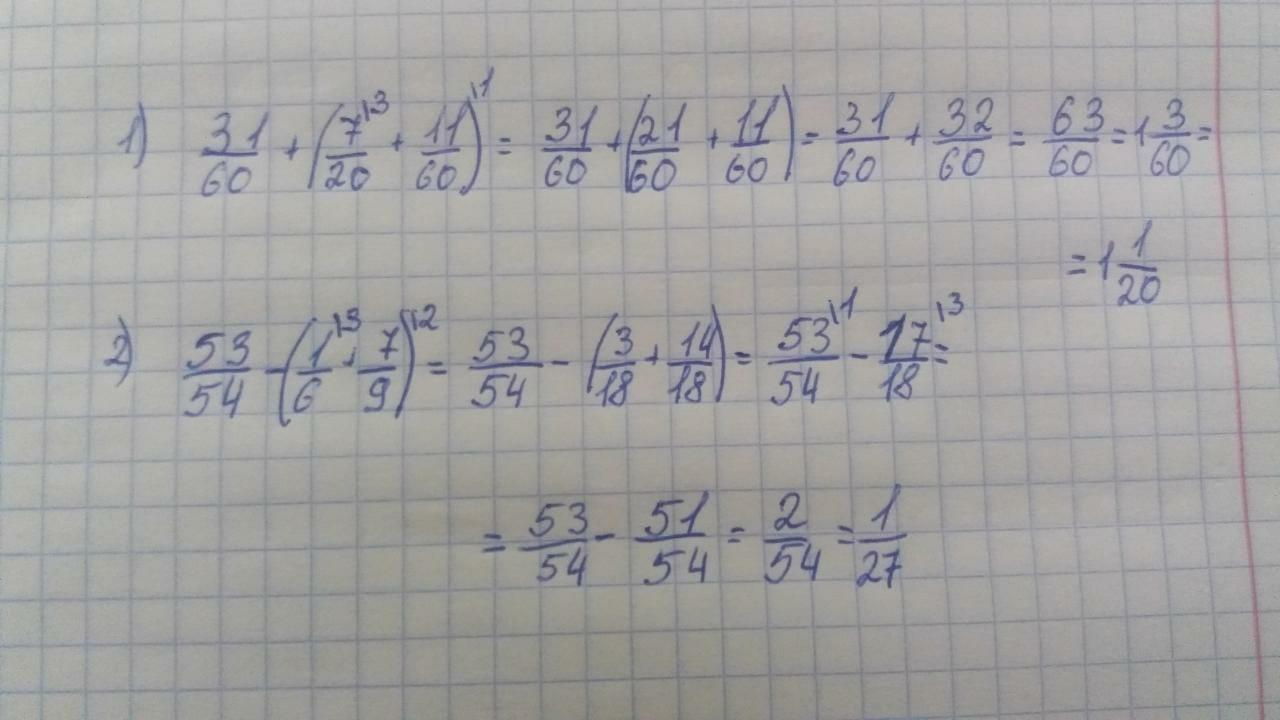 1) 31/60 + (7/20 \3 + 11/60) \1 = 31/60 + (21/60 + 11/60) = 31/60 + 32/60 = 63/60 = 1 3/60 =
= 1 1/20
2) 53/54 - (1/6 \3 + 7/9) \2 = 53/54 - (3/18 + 14/18) = 53/54 \1 - 17/18 \3 =
= 53/54 - 51/54 = 2/54 = 1/27